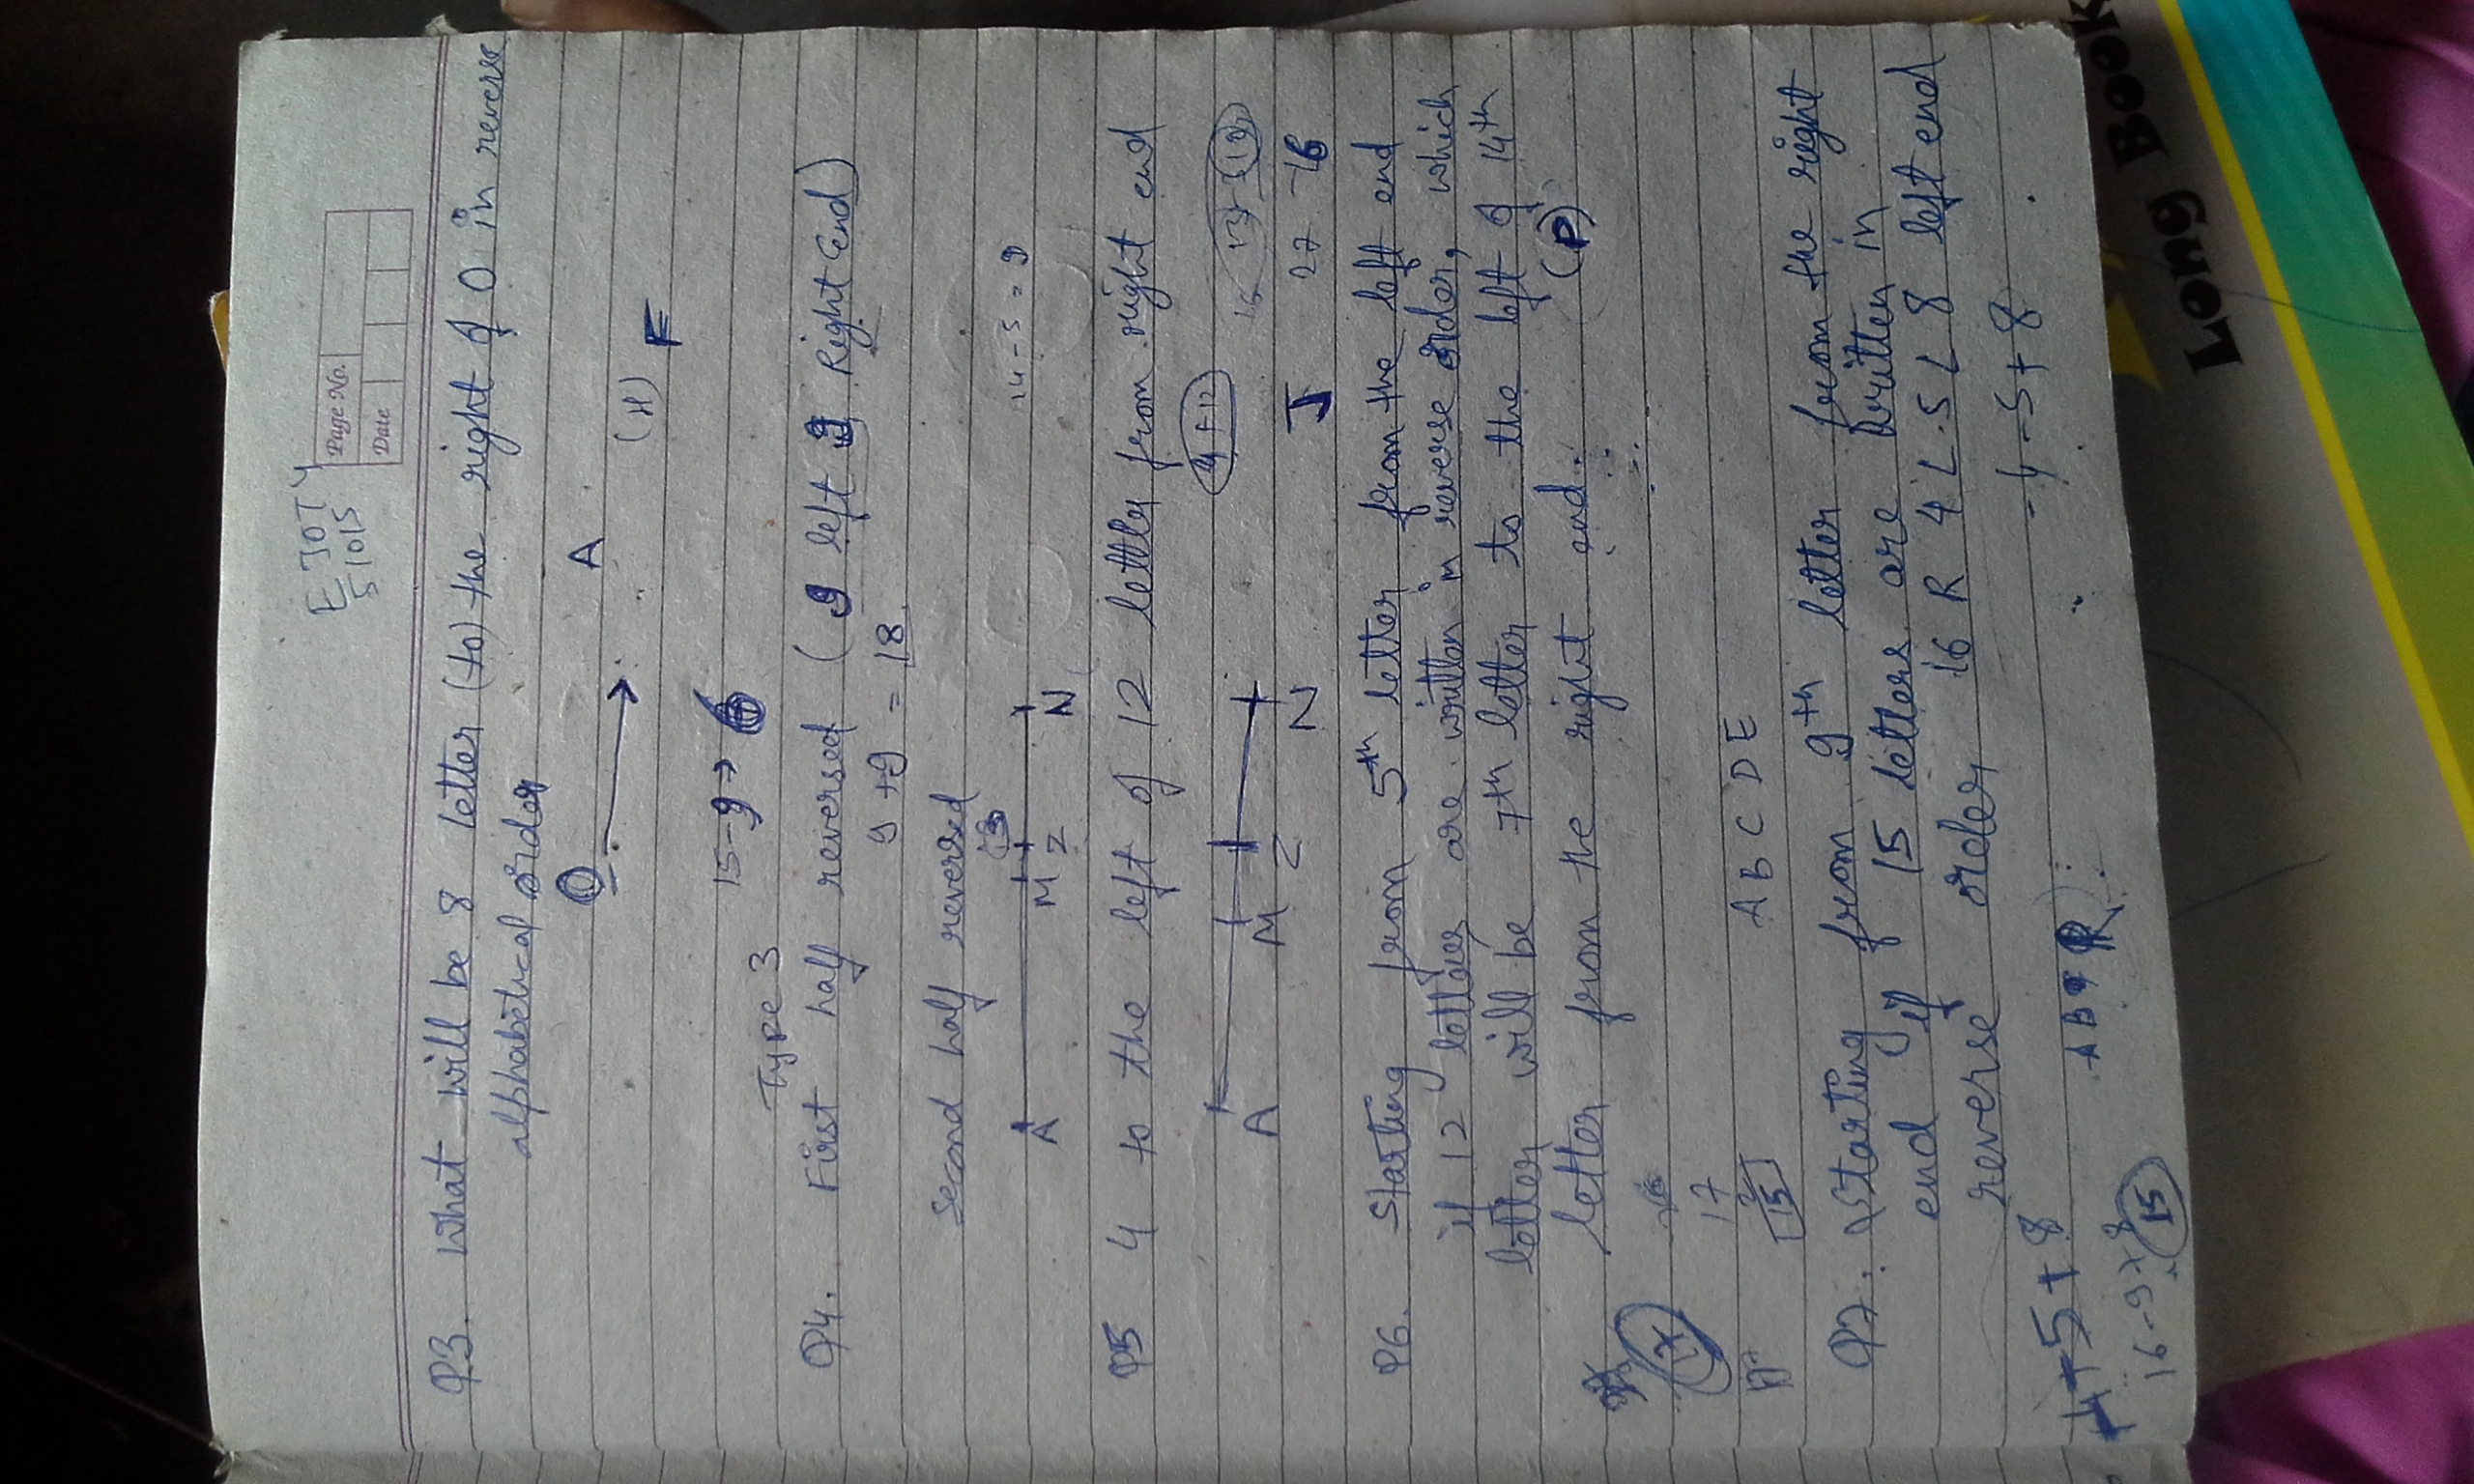 E JOTY
5 10 15
Page No.
Date
Q3. What will be 8 letter (to) the right of O in reverse
alphabetical order
O A
(H) F
15-9→ 6
Type 3
Q4. First half reversed (9 left 9 Right End)
9+9 = 18
Second half reversed
A M Z N
14-5 = 9
Q5 4 to the left of 12 letter from right end
4+12
A M Z N
J 27 -16
Q6. Starting from 5th letter from the left end
if 12 letters are written in reverse order, which
letter will be 7th letter to the left of 14th
letter from the right end. (P)
17
17
2
15
A B C D E
Q7. Starting from 9th letter from the right
end if 15 letters are written in
reverse order, 16 R 4 L 5 L 8 left end
-4-5+8
-4+5+8
16-9+8
15
R
Long Book